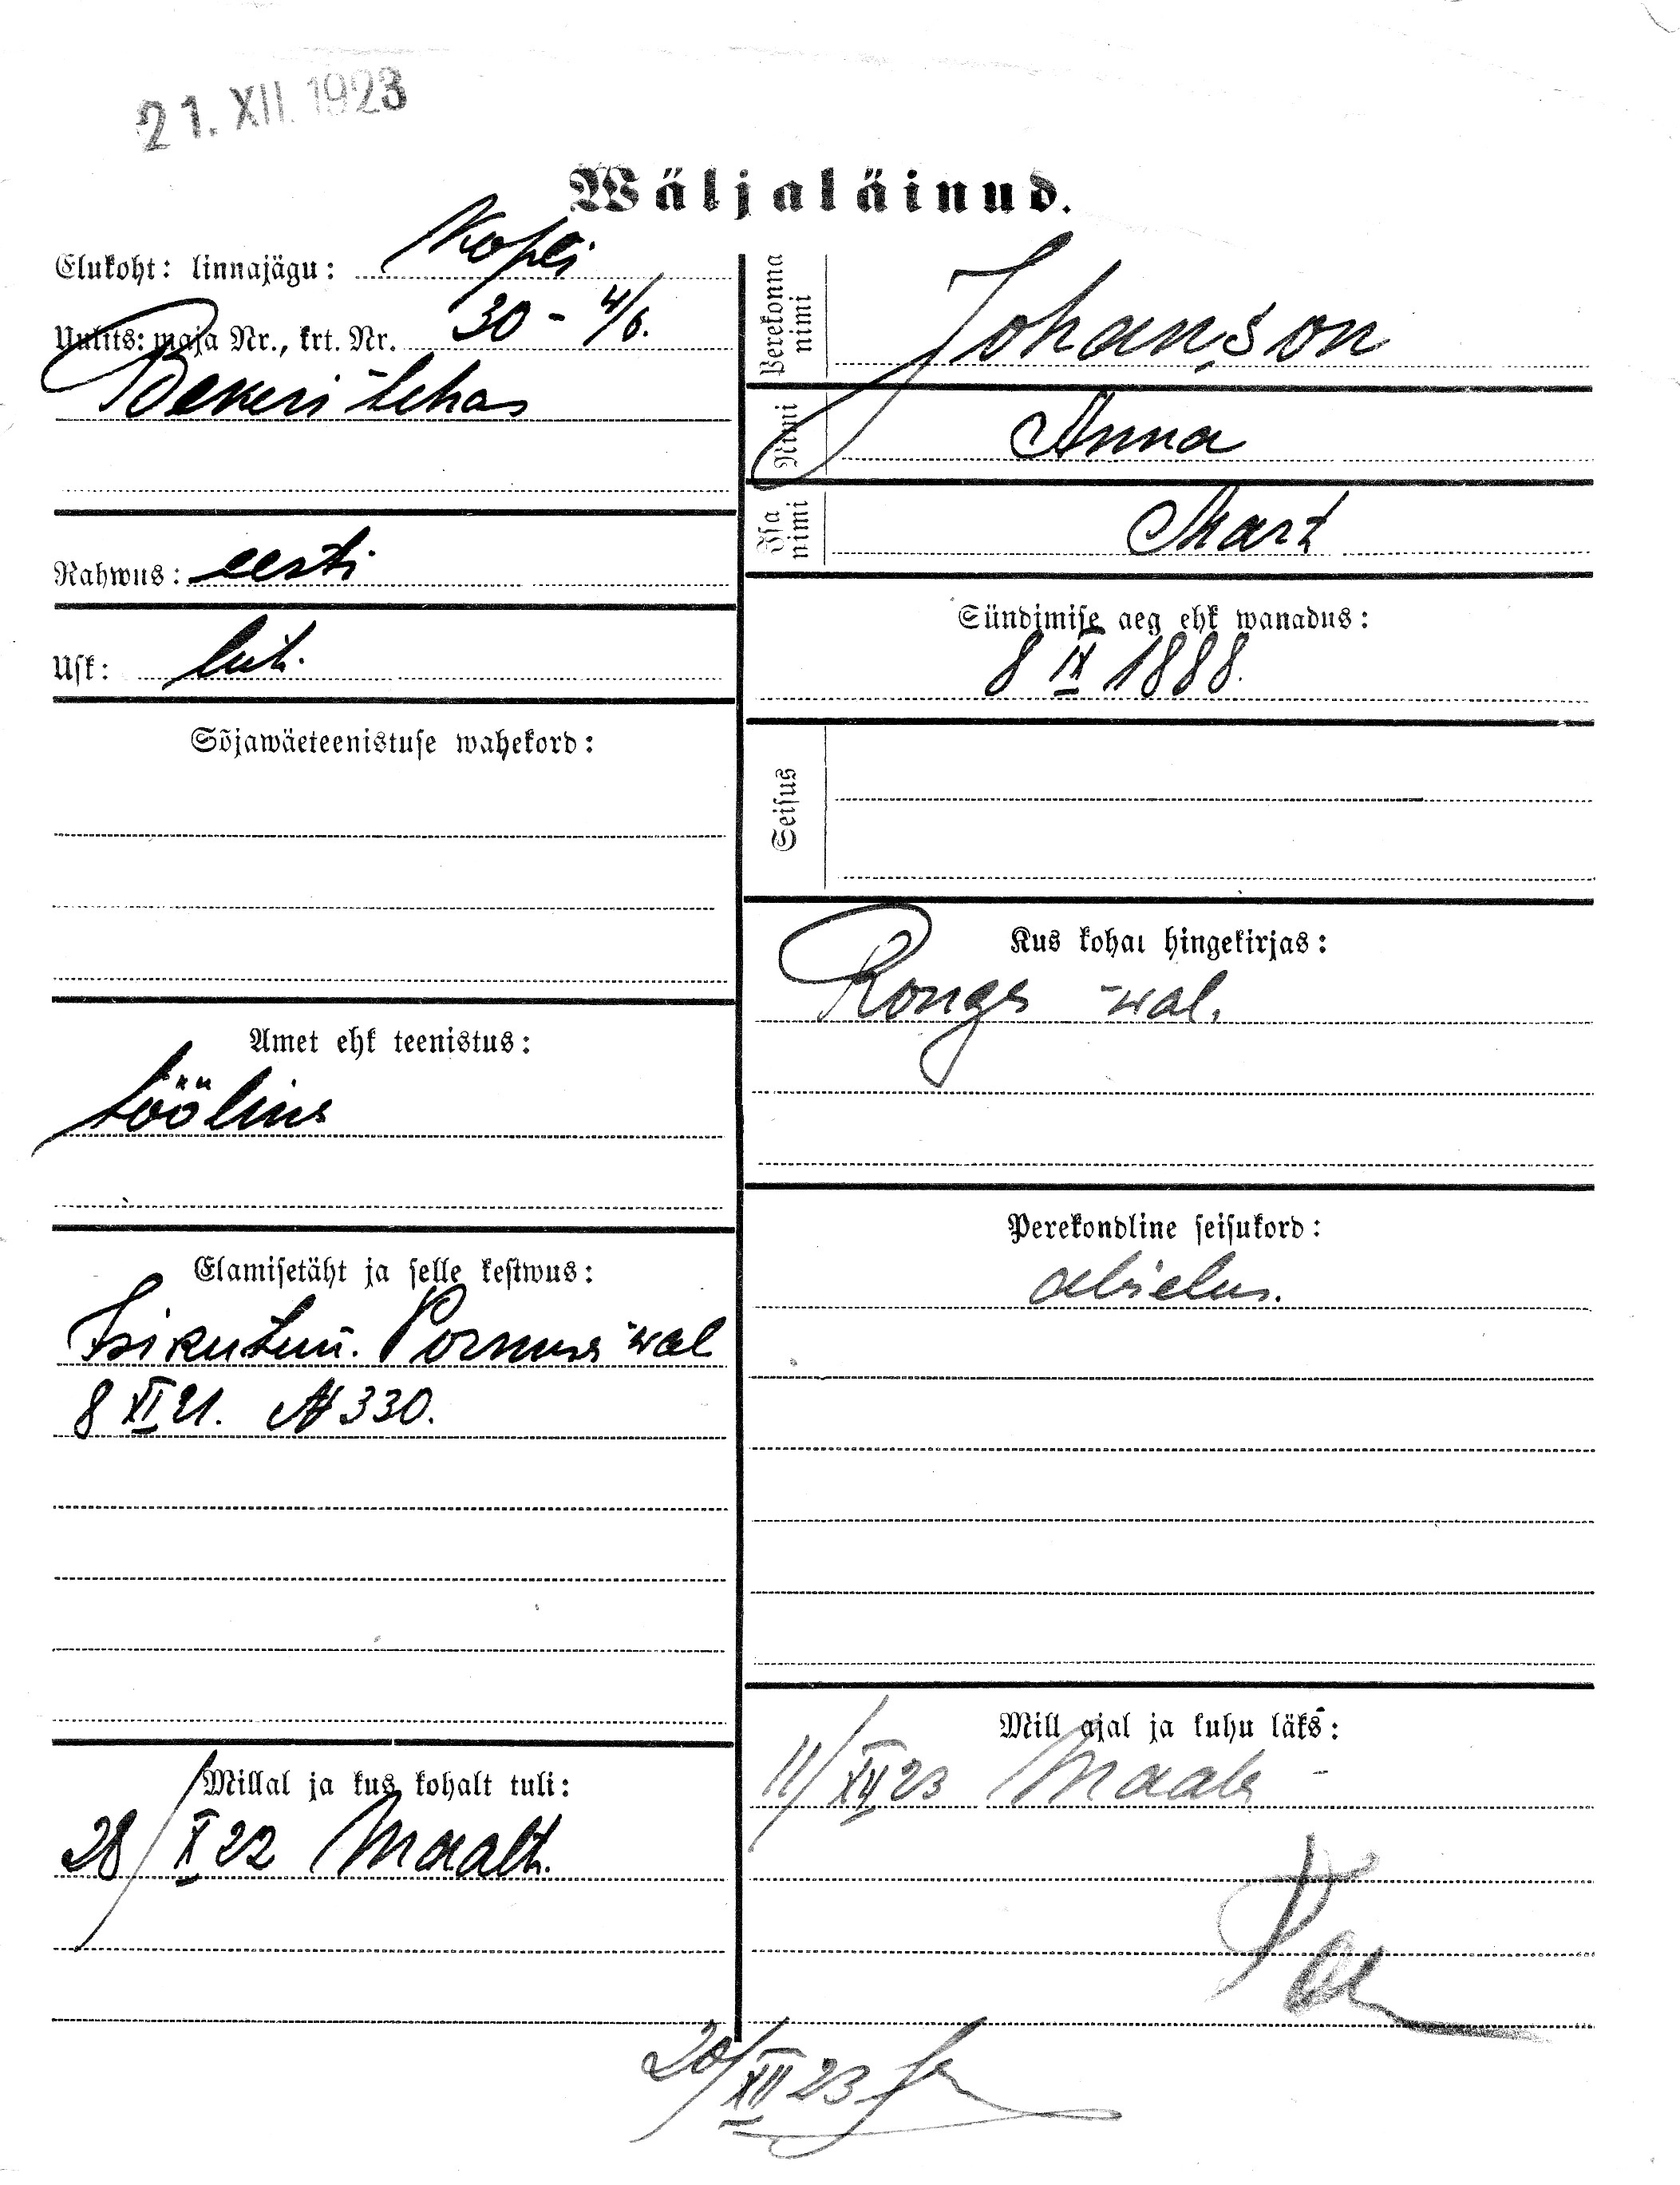 21. XII. 1923
Wäljaläinud.
Elukoht: linnajägu: Kopli
Uulits: maja Nr., krt. Nr. 30 - 4/6.
Bekeri tehas
Rahwus: eesti
Usk: lut.
Sõjawäeteenistuse wahekord:
Amet ehk teenistus:
tööline
Elamisetäht ja selle kestwus:
Isikutun. Pornuse wal
8 XI 21. № 330.
Millal ja kus kohalt tuli:
28/X 22 Maalt.
Perekonna nimi Johanson
Nimi Anna
Isa nimi Mart
Sündimise aeg ehk wanadus:
8 IX 1888.
Seisus
Kus kohal hingekirjas:
wal.
Perekondline seisukord:
abielus.
Mill ajal ja kuhu läks:
11/XII 23 Maale -
20/XII 23